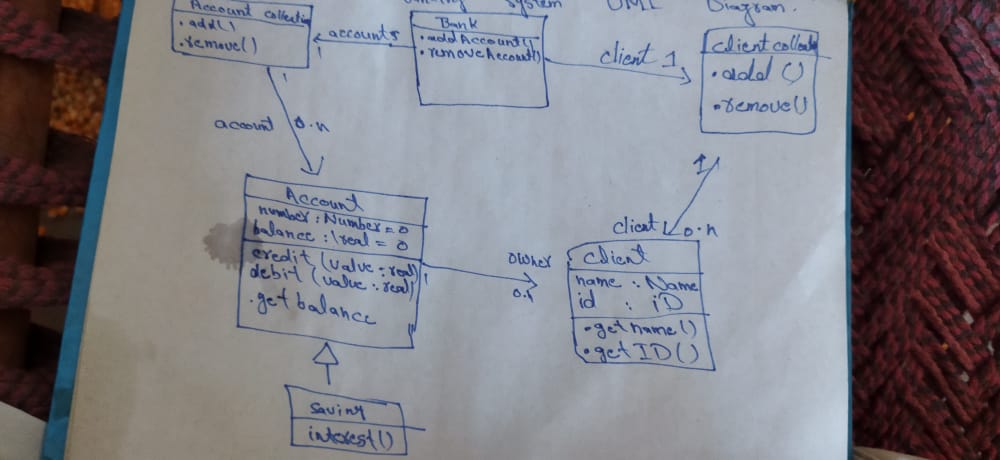 System UML Diagram.
Account collection
.add()
.remove()
accounts
1
Bank
.addAccount()
.removeAccount()
client 1
client collect
.add ()
.remove()
account 0.n
Account
number : Number = 0
balance : real = 0
credit (value : real)
debit (value : real)
.get balance
1
owner
client 0.n
1
client
name : Name
id : iD
.get name()
.get ID()
saving
interest()